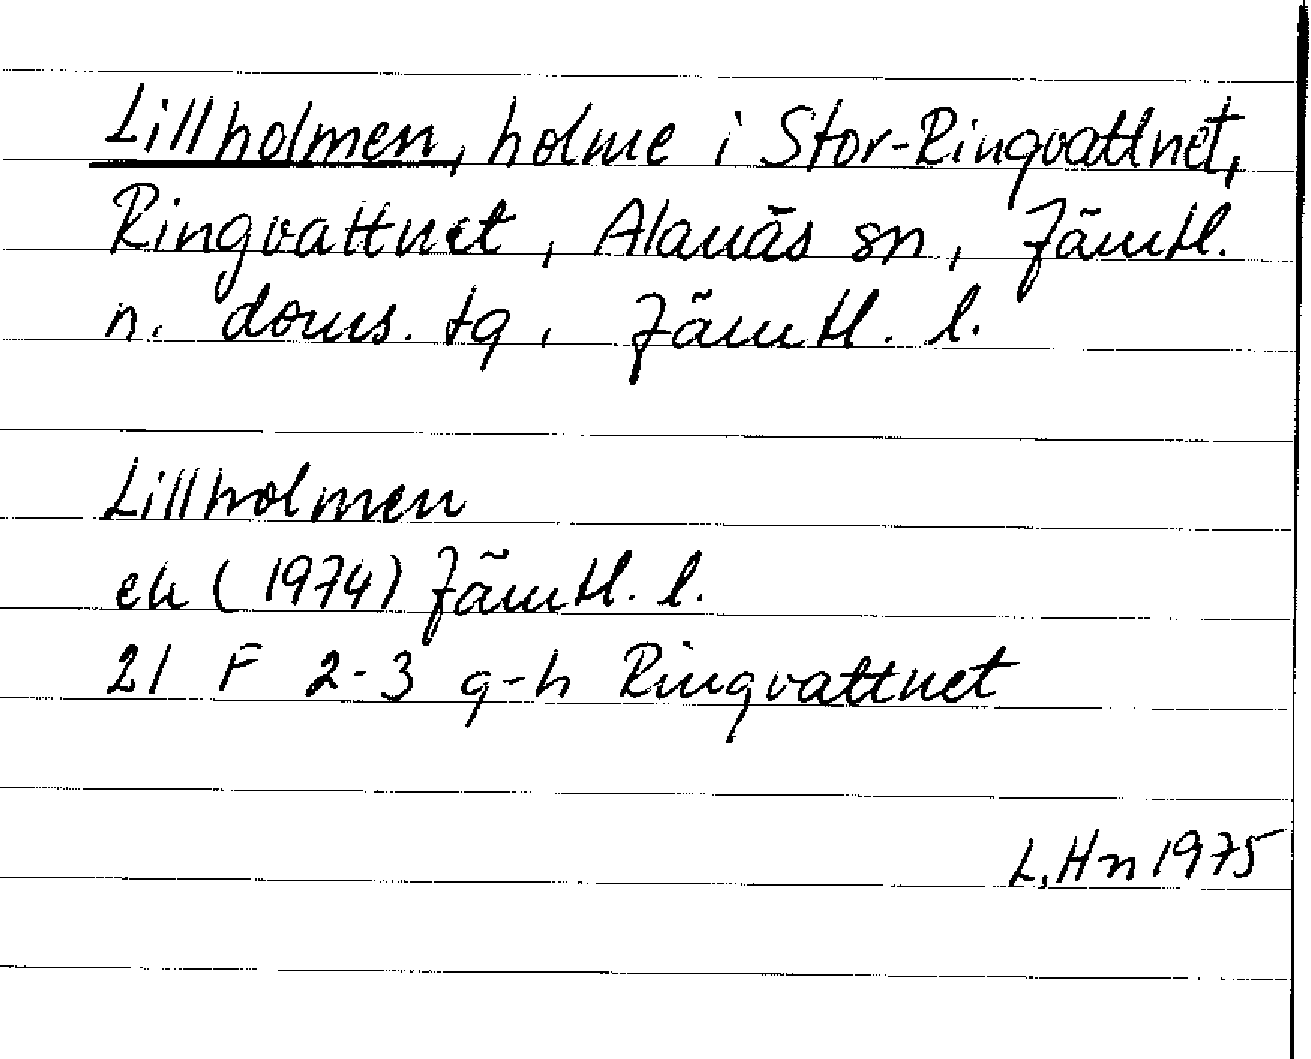 Lillholmen, holme i Stor-Ringvattnet,
Ringvattnet, Alanäs sn, Jämtl.
n. doms. tg, Jämtl. l.
Lillholmen
ek (1974) Jämtl. l.
21 F 2-3 g-h Ringvattnet
L, Hn 1975